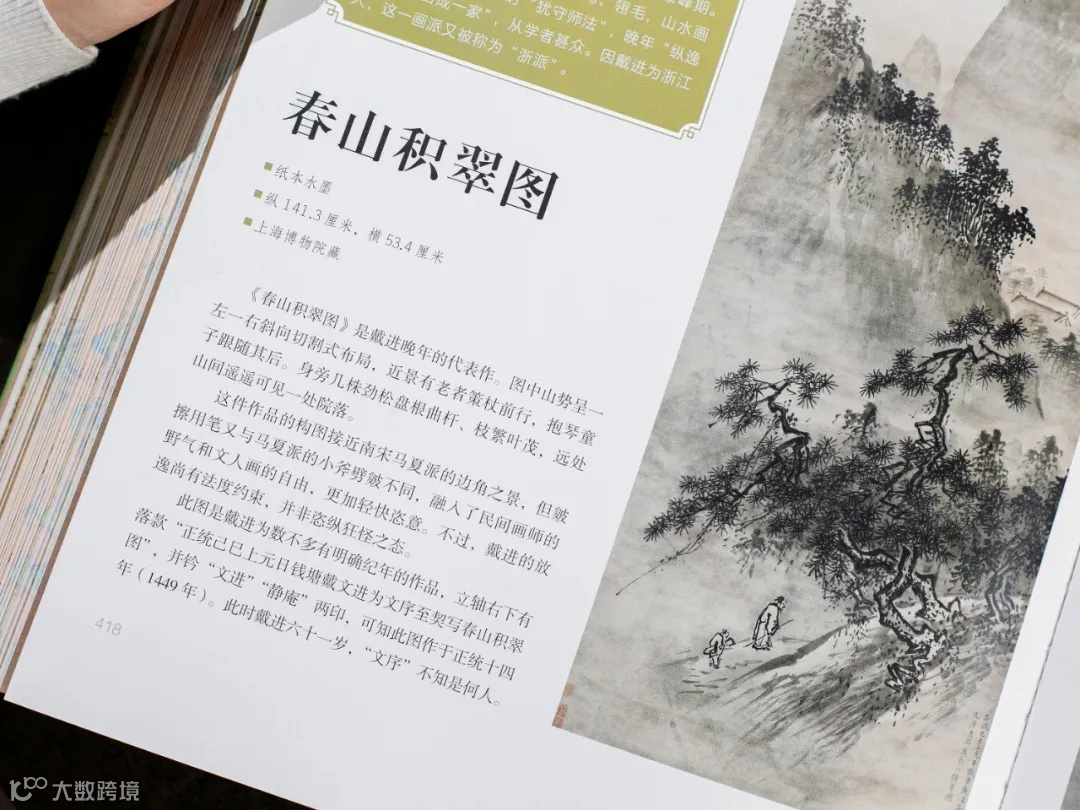 翎毛，山水画
“犹守师法”，晚年“纵逸
出成一家”，从学者甚众。因戴进为浙江
人，这一画派又被称为“浙派”。
春山积翠图
纸本水墨
纵 141.3 厘米，横 53.4 厘米
上海博物院藏
《春山积翠图》是戴进晚年的代表作。图中山势呈一
左一右斜向切割式布局，近景有老者策杖前行，抱琴童
子跟随其后。身旁几株劲松盘根曲杆、枝繁叶茂，远处
山间遥遥可见一处院落。
这件作品的构图接近南宋马夏派的边角之景，但皴
擦用笔又与马夏派的小斧劈皴不同，融入了民间画师的
野气和文人画的自由，更加轻快恣意。不过，戴进的放
逸尚有法度约束，并非恣纵狂怪之态。
此图是戴进为数不多有明确纪年的作品，立轴右下有
落款“正统己巳上元日钱塘戴文进为文序至契写春山积翠
图”，并钤“文进”“静庵”两印，可知此图作于正统十四
年（1449 年）。此时戴进六十一岁，“文序”不知是何人。
418
大数跨境